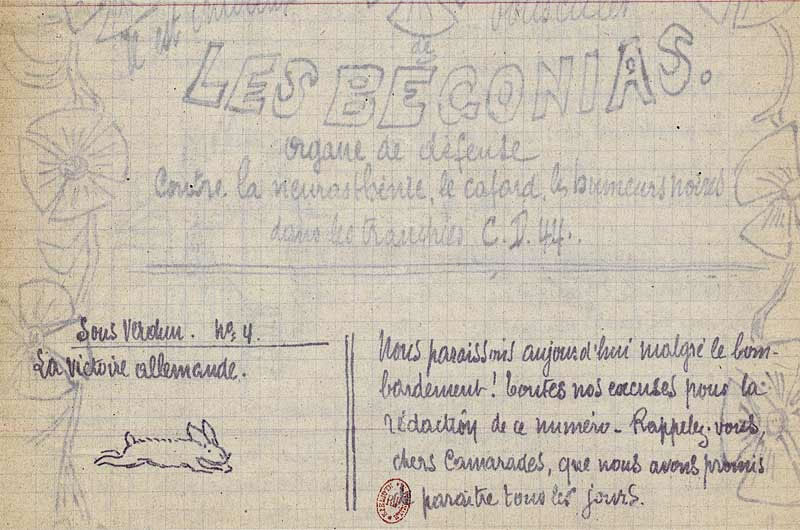 n'est
de
LES BEGONIAS.
organe de défense
Contre la neurasthénie, le cafard, les humeurs noires
dans les tranchées C.D. 44.
Sous Verdun. No: 4.
La victoire allemande.
Nous paraissons aujourd'hui malgré le bom-
bardement! Toutes nos excuses pour la
rédaction de ce numéro - Rappelez-vous,
chers Camarades, que nous avons promis
de paraître tous les jours.